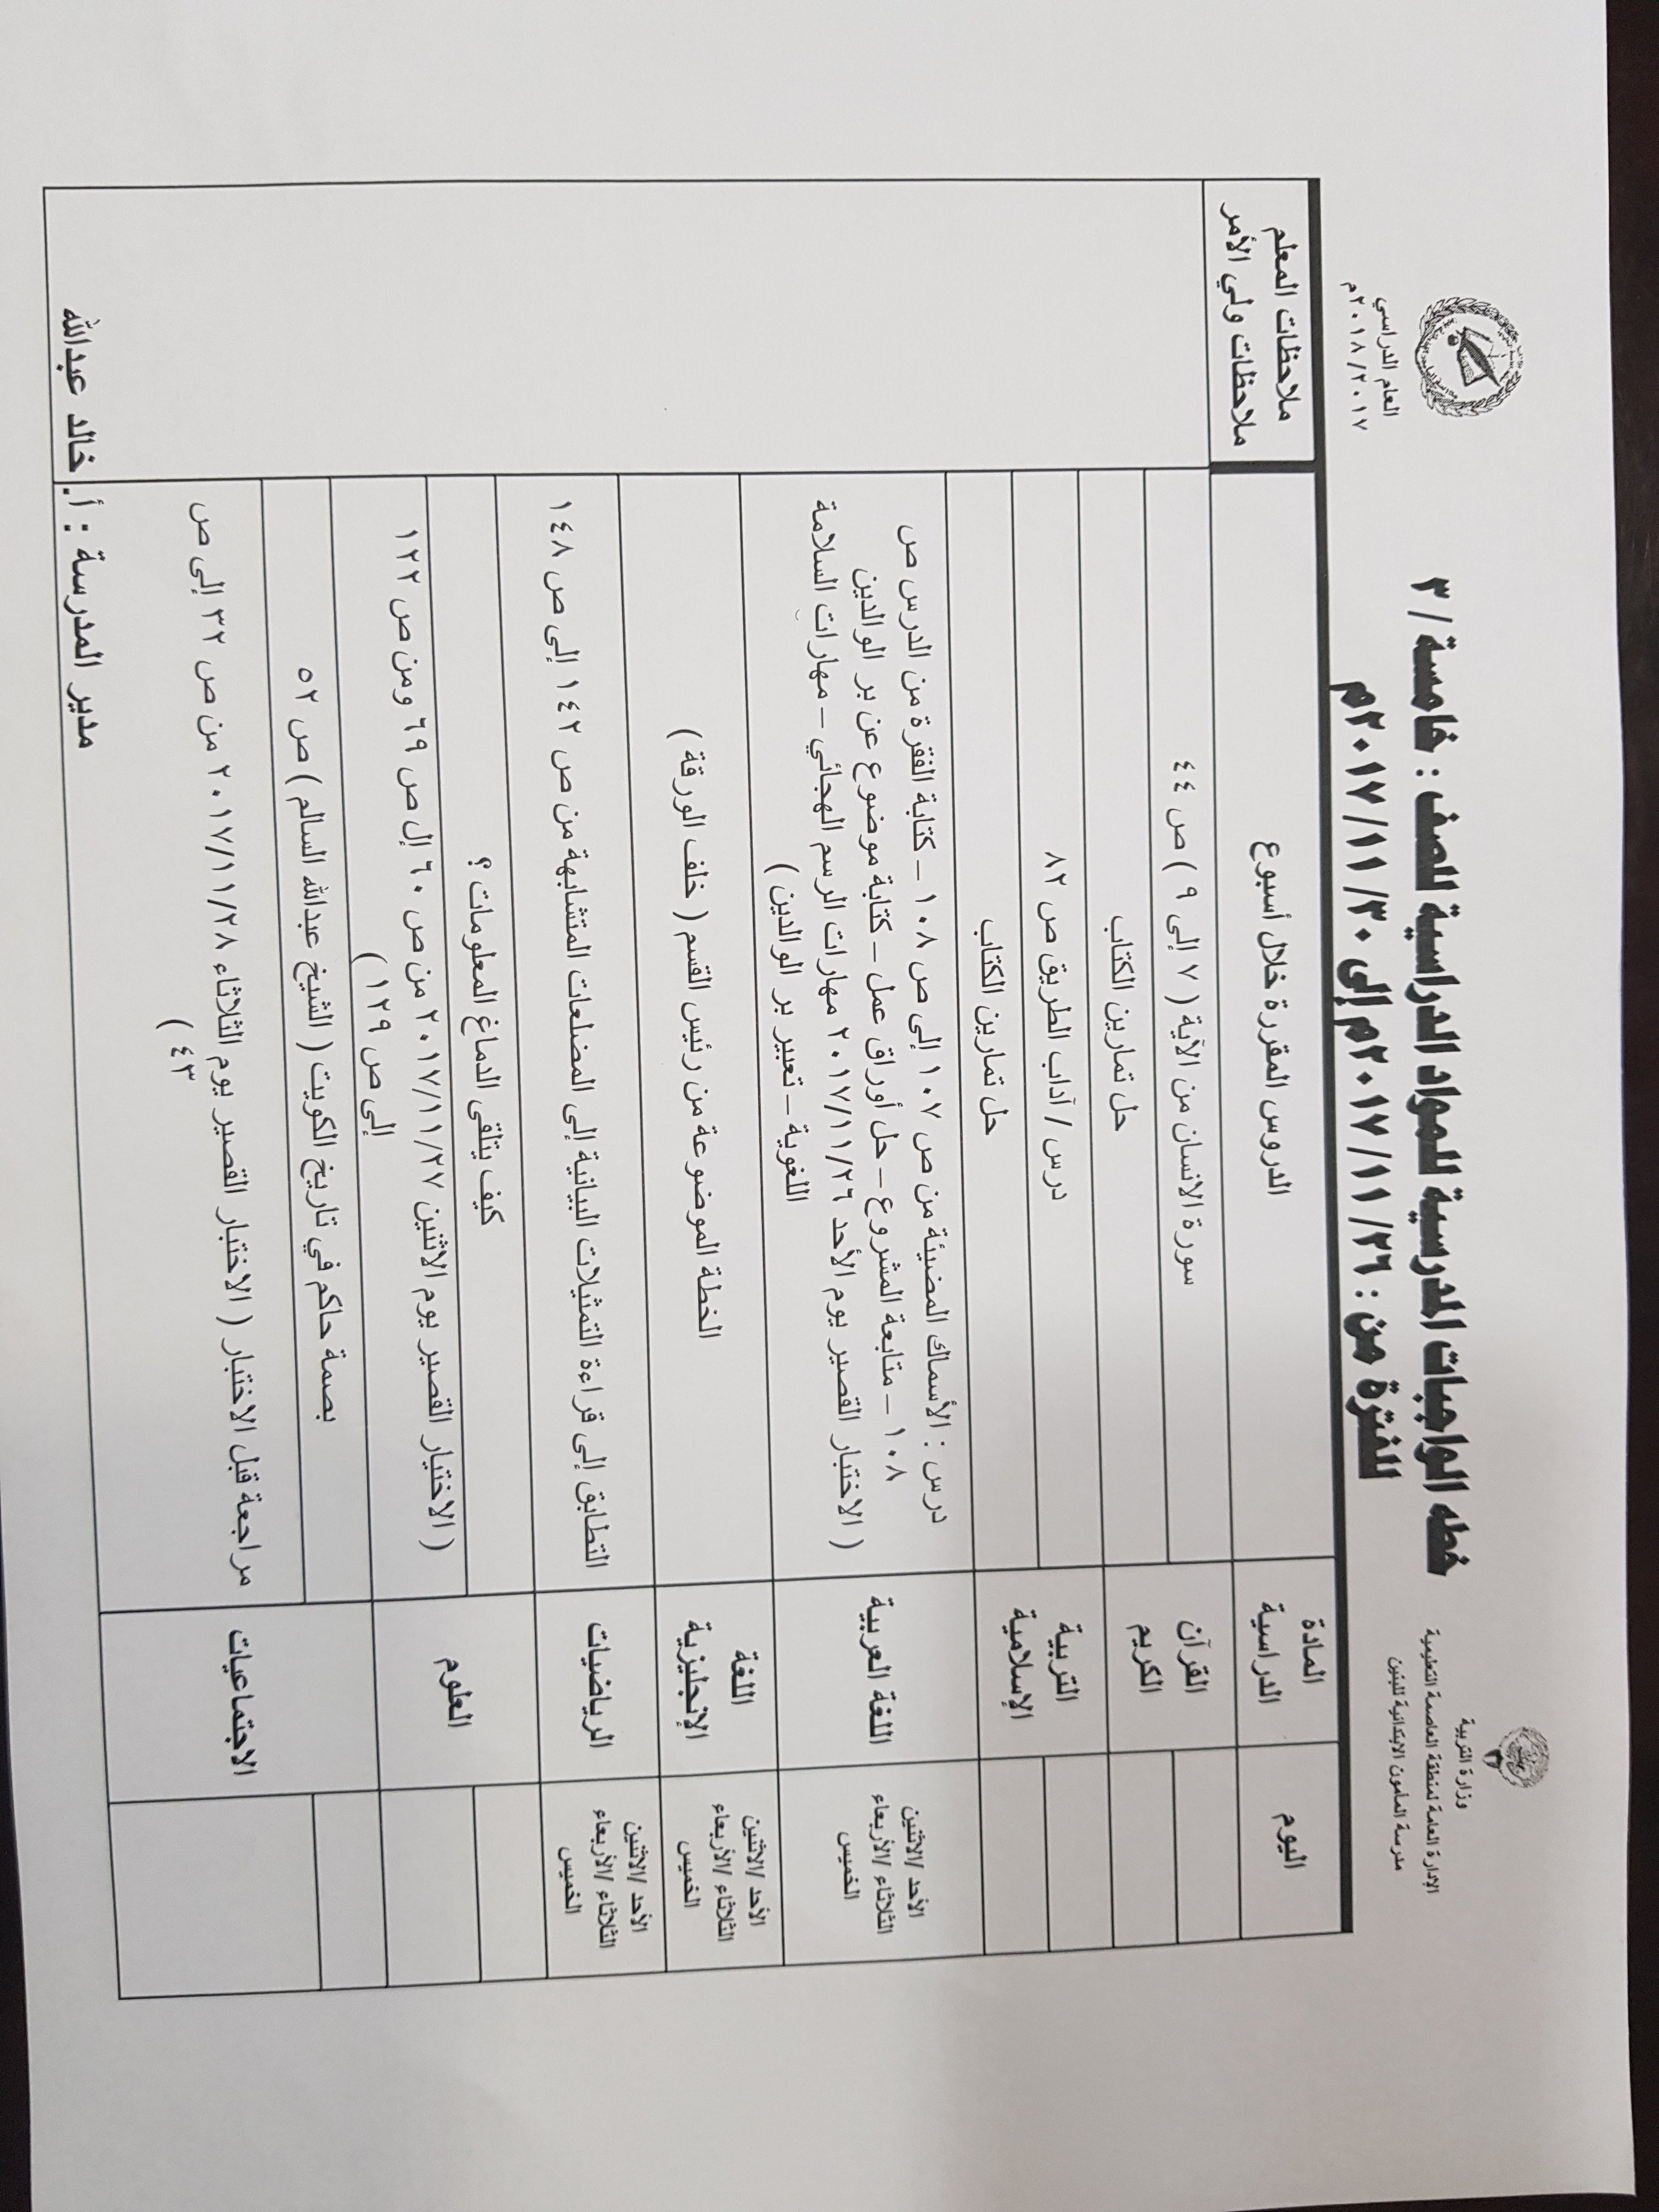 وزارة التربية
الإدارة العامة لمنطقة العاصمة التعليمية
مدرسة المأمون الابتدائية للبنين
خطه الواجبات المدرسية للمواد الدراسية للصف : خامسة / ٣
للفترة من : ٢٠١٧/١١/٢٦م إلى ٢٠١٧/١١/٣٠م
العام الدراسي
٢٠١٨/٢٠١٧م
اليوم
المادة
الدراسية
الدروس المقررة خلال أسبوع
ملاحظات المعلم
ملاحظات ولي الأمر
القرآن
الكريم
سورة الانسان من الآية ( ٧ إلى ٩ ) ص ٤٤
حل تمارين الكتاب
التربية
الإسلامية
درس / آداب الطريق ص ٨٢
حل تمارين الكتاب
الأحد /الاثنين
الثلاثاء /الأربعاء
الخميس
اللغة العربية
درس : الأسماك المضيئة من ص ١٠٧ إلى ص ١٠٨ – كتابة الفقرة من الدرس ص
١٠٨ – متابعة المشروع – حل أوراق عمل – كتابة موضوع عن بر الوالدين
( الاختبار القصير يوم الأحد ٢٠١٧/١١/٢٦ مهارات الرسم الهجائي – مهارات السلامة
اللغوية – تعبير بر الوالدين )
الأحد /الاثنين
الثلاثاء /الأربعاء
الخميس
اللغة
الإنجليزية
الخطة الموضوعة من رئيس القسم ( خلف الورقة )
الأحد /الاثنين
الثلاثاء /الأربعاء
الخميس
الرياضيات
التطابق إلى قراءة التمثيلات البيانية إلى المضلعات المتشابهة من ص ١٤٢ إلى ص ١٤٨
العلوم
كيف يتلقى الدماغ المعلومات ؟
( الاختبار القصير يوم الاثنين ٢٠١٧/١١/٢٧ من ص ٦٠ إل ص ٦٩ ومن ص ١٢٢
إلى ص ١٢٩ )
الاجتماعيات
بصمة حاكم في تاريخ الكويت ( الشيخ عبدالله السالم ) ص ٥٢
مراجعة قبل الاختبار ( الاختبار القصير يوم الثلاثاء ٢٠١٧/١١/٢٨ من ص ٣٢ إلى ص
٤٣ )
مدير المدرسة : أ. خالد عبدالله